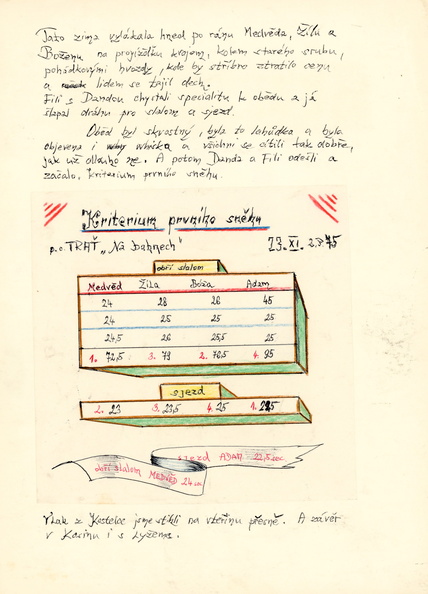 Tato zima vylákala hned po ránu Medvěda, Žílu a
Boženu na projížďku krajem, kolem starého srubu,
pohádkovými hvozdy, kde by stříbro ztratilo cenu
a lidem se tajil dech.
Fili s Dandou chystali specialitu k obědu a já
šlapal dráhu pro slalom a sjezd.
Oběd byl skvostný, byla to lahůdka a byla
objevena i a všichni se cítili tak dobře,
jak už dlouho ne. A potom Danda a Fili odešli a
začalo, Kriterium prvního sněhu.
Kriterium prvního sněhu
p.c. TRAŤ „Na bahnech"
23. XI. 1975
obří slalom
Medvěd Žíla Bóža Adam
24 28 26 45
24 25 25 25
24,5 26 25,5 25
1. 72,5 3. 79 2. 76,5 4. 95
sjezd
2. 23 3. 23,5 4. 25 1. 22,5
sjezd ADAM 22,5 sec
obří slalom MEDVĚD 24 sec
Vlak z Kostelce jsme stihli na vteřinu přesně. A závěr
v Kasinu i s lyžema.